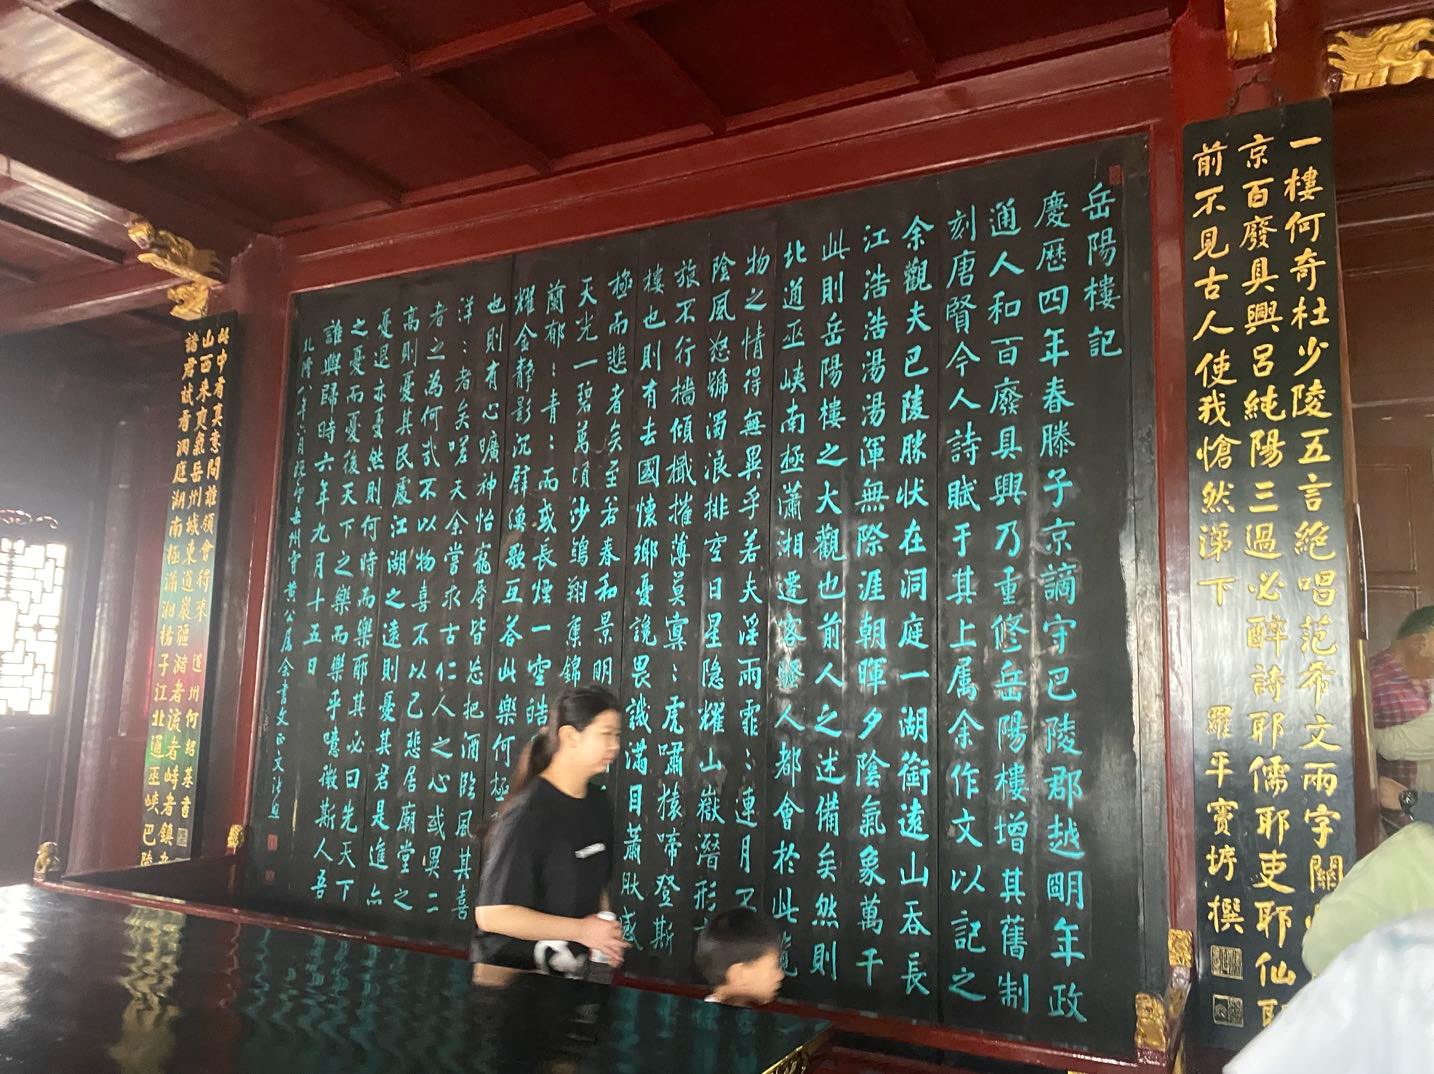 一樓何奇杜少陵五言絕唱范希文兩字關
京百廢具興呂純陽三過必醉詩耶儒耶吏耶仙耶
前不見古人使我愴然涕下
羅平竇垿撰
岳陽樓記
慶歷四年春滕子京謫守巴陵郡越明年政
通人和百廢具興乃重修岳陽樓增其舊制
刻唐賢今人詩賦于其上属余作文以記之
余觀夫巴陵勝状在洞庭一湖銜遠山吞長
江浩浩湯湯渾無際涯朝暉夕陰氣象萬千
此則岳陽樓之大觀也前人之述備矣然則
北通巫峽南極瀟湘遷客騷人都會於此
物之情得無異乎若夫淫雨霏:連月不
陰風怒號濁浪排空日星隱耀山嶽潛形
旅不行檣傾檝摧薄莫冥:虎嘯猿啼登斯
樓也則有去國懷鄉憂讒畏譏滿目蕭肰感
極而悲者矣至若春和景明
天光一碧萬頃沙鷗翔集錦
蘭郁:青:而或長煙一空皓
耀金静影沉璧漁歌互荅此樂何極
也則有心曠神怡寵辱皆忘把酒臨風其喜
洋:者矣嗟夫余嘗求古仁人之心或異二
者之為何哉不以物喜不以己悲居廟堂之
高則憂其民處江湖之遠則憂其君是進亦
憂退亦憂然則何時而樂耶其必曰先天下
之憂而憂後天下之樂而樂乎噫微斯人吾
誰與歸時六年九月十五日
此中有真意問誰領會得來
山西來爽氣岳州城東道巖疆瀦者流者峙者鎮
諸君試看洞庭湖南極瀟湘揚子江北通巫峽巴陵
道州何紹基書